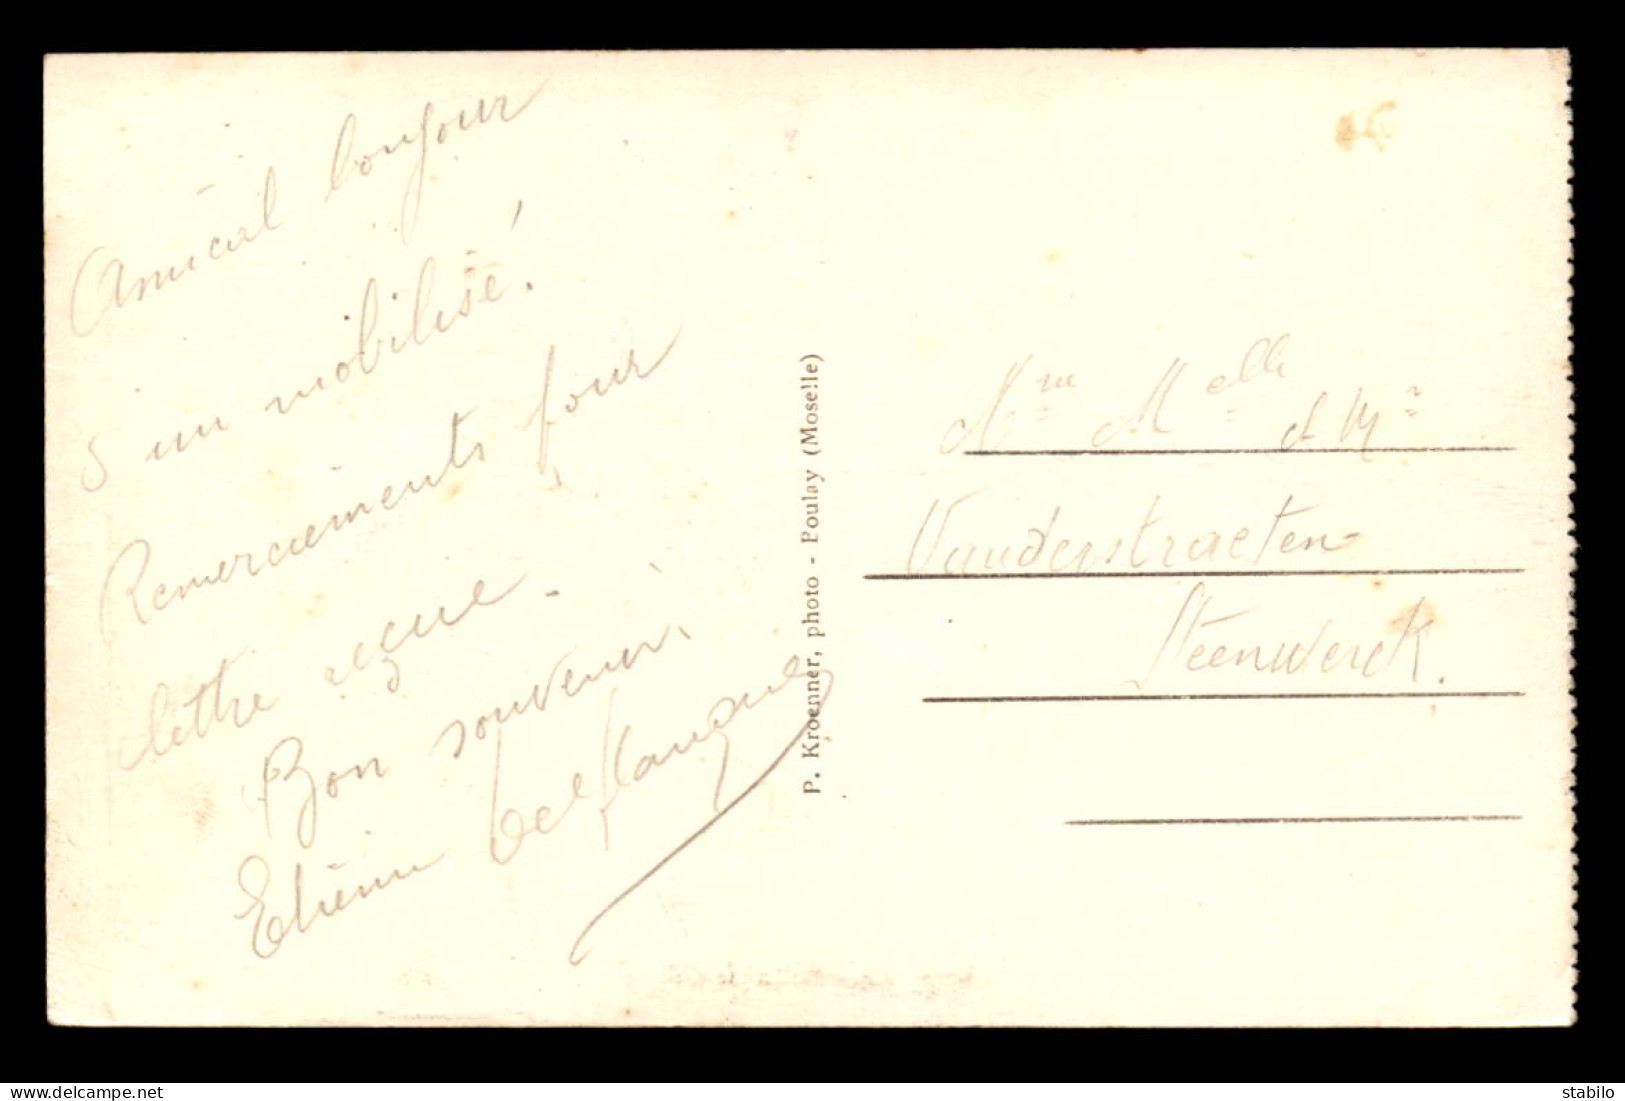 Amical bonjour
d'un mobilisé.
Remerciements pour
lettre reçue.
Bon souvenir.
Etienne
P. Kroenner, photo - Poulay (Moselle)
Mme Melle et Mr
Vanderstraeten
Steenwerck.
delcampe.net
stabilo